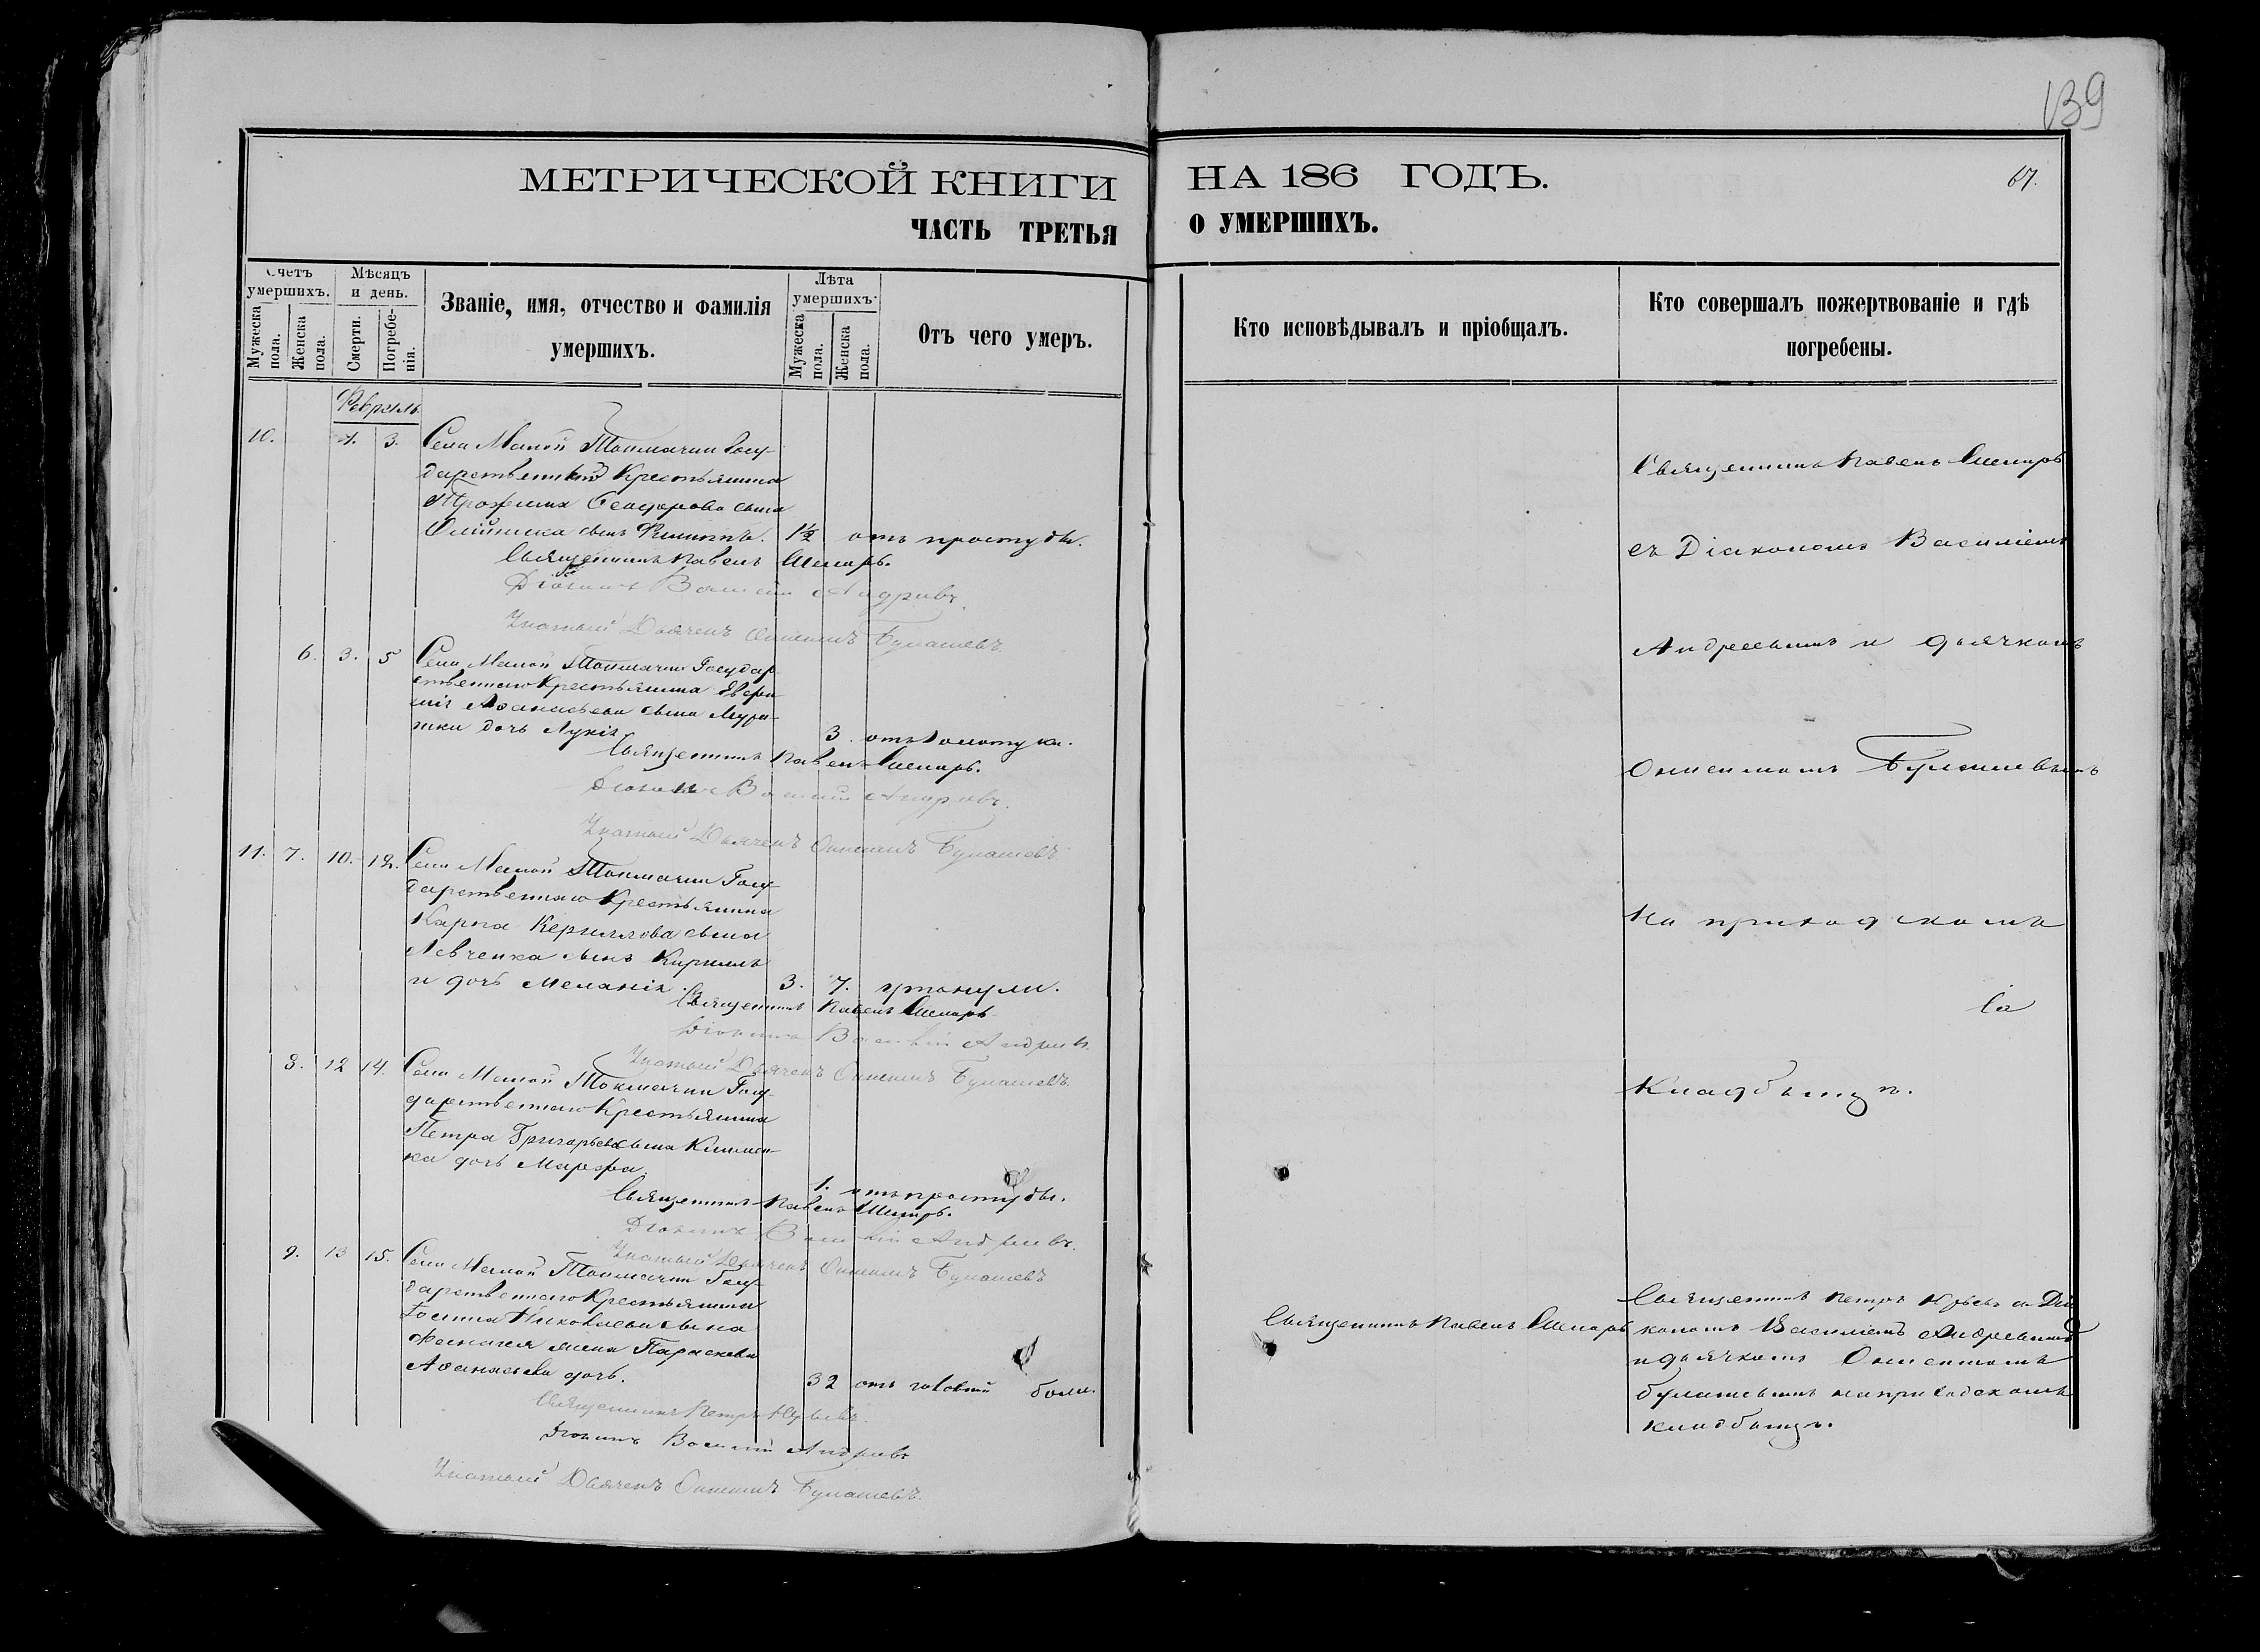 139
МЕТРИЧЕСКОЙ КНИГИ НА 186 ГОДЪ.
67.
ЧАСТЬ ТРЕТЬЯ О УМЕРШИХЪ.
Счетъ умершихъ.
Мужеска пола.
Женска пола.
Мѣсяцъ и день.
Смерти.
Погребенія.
Званіе, имя, отчество и фамилія
умершихъ.
Лѣта умершихъ.
Мужеска пола.
Женска пола.
Отъ чего умеръ.
Кто исповѣдывалъ и пріобщалъ.
Кто совершалъ пожертвованіе и гдѣ
погребены.
Февраль
10. 1. 3. Села Малой Токмачки Госу-
дарственный Крестьянина
Трофима Феодорова сына
Олійника сынъ Филиппъ. 1½ отъ простуды.
Священникъ Павелъ
Діаконъ Василій Андреевъ.
Дьячекъ Онисимъ Булашевъ
6. 3. 5 Села Малой Токмачки Государ
ственнаго Крестьянина
Аѳанасьева сына
дочь Лукія 3. отъ золотухи.
Священникъ Павелъ
Діаконъ Василій Андреевъ.
Дьячекъ Онисимъ Булашевъ
11. 7. 10. 12. Села Малой Токмачки Госу-
дарственнаго Крестьянина
Карпа Кериллова сына
Левченка сынъ Кириллъ
и дочь Меланія. 3. 7. утонули.
Священникъ Павелъ
Діаконъ Василій Андреевъ.
Дьячекъ Онисимъ Булашевъ
8. 12 14. Села Малой Токмачки Госу-
дарственнаго Крестьянина
Петра Григорьева сына Климен-
ка дочь Марфа. 1. отъ простуды.
Священникъ Павелъ
Діаконъ Василій Андреевъ.
Дьячекъ Онисимъ Булашевъ
9. 13 15. Села Малой Токмачки Госу-
дарственнаго Крестьянина
Николаева сына
жена Параскева
Аѳанасьева дочь. 32 отъ головной боли.
Священникъ Петръ Юрьевъ.
Діаконъ Василій Андреевъ
Дьячекъ Онисимъ Булашевъ.
Священникъ Павелъ
съ Діакономъ Василіемъ
Андреевымъ и дьячкомъ
Онисимомъ Булашевымъ
На приходскомъ
Кладбищѣ.
Священникъ Павелъ
Священникъ Петръ Юрьевъ съ Діа
кономъ Василіемъ Андреевымъ
и дьячкомъ Онисимомъ
Булашевымъ на приходскомъ
кладбищѣ.